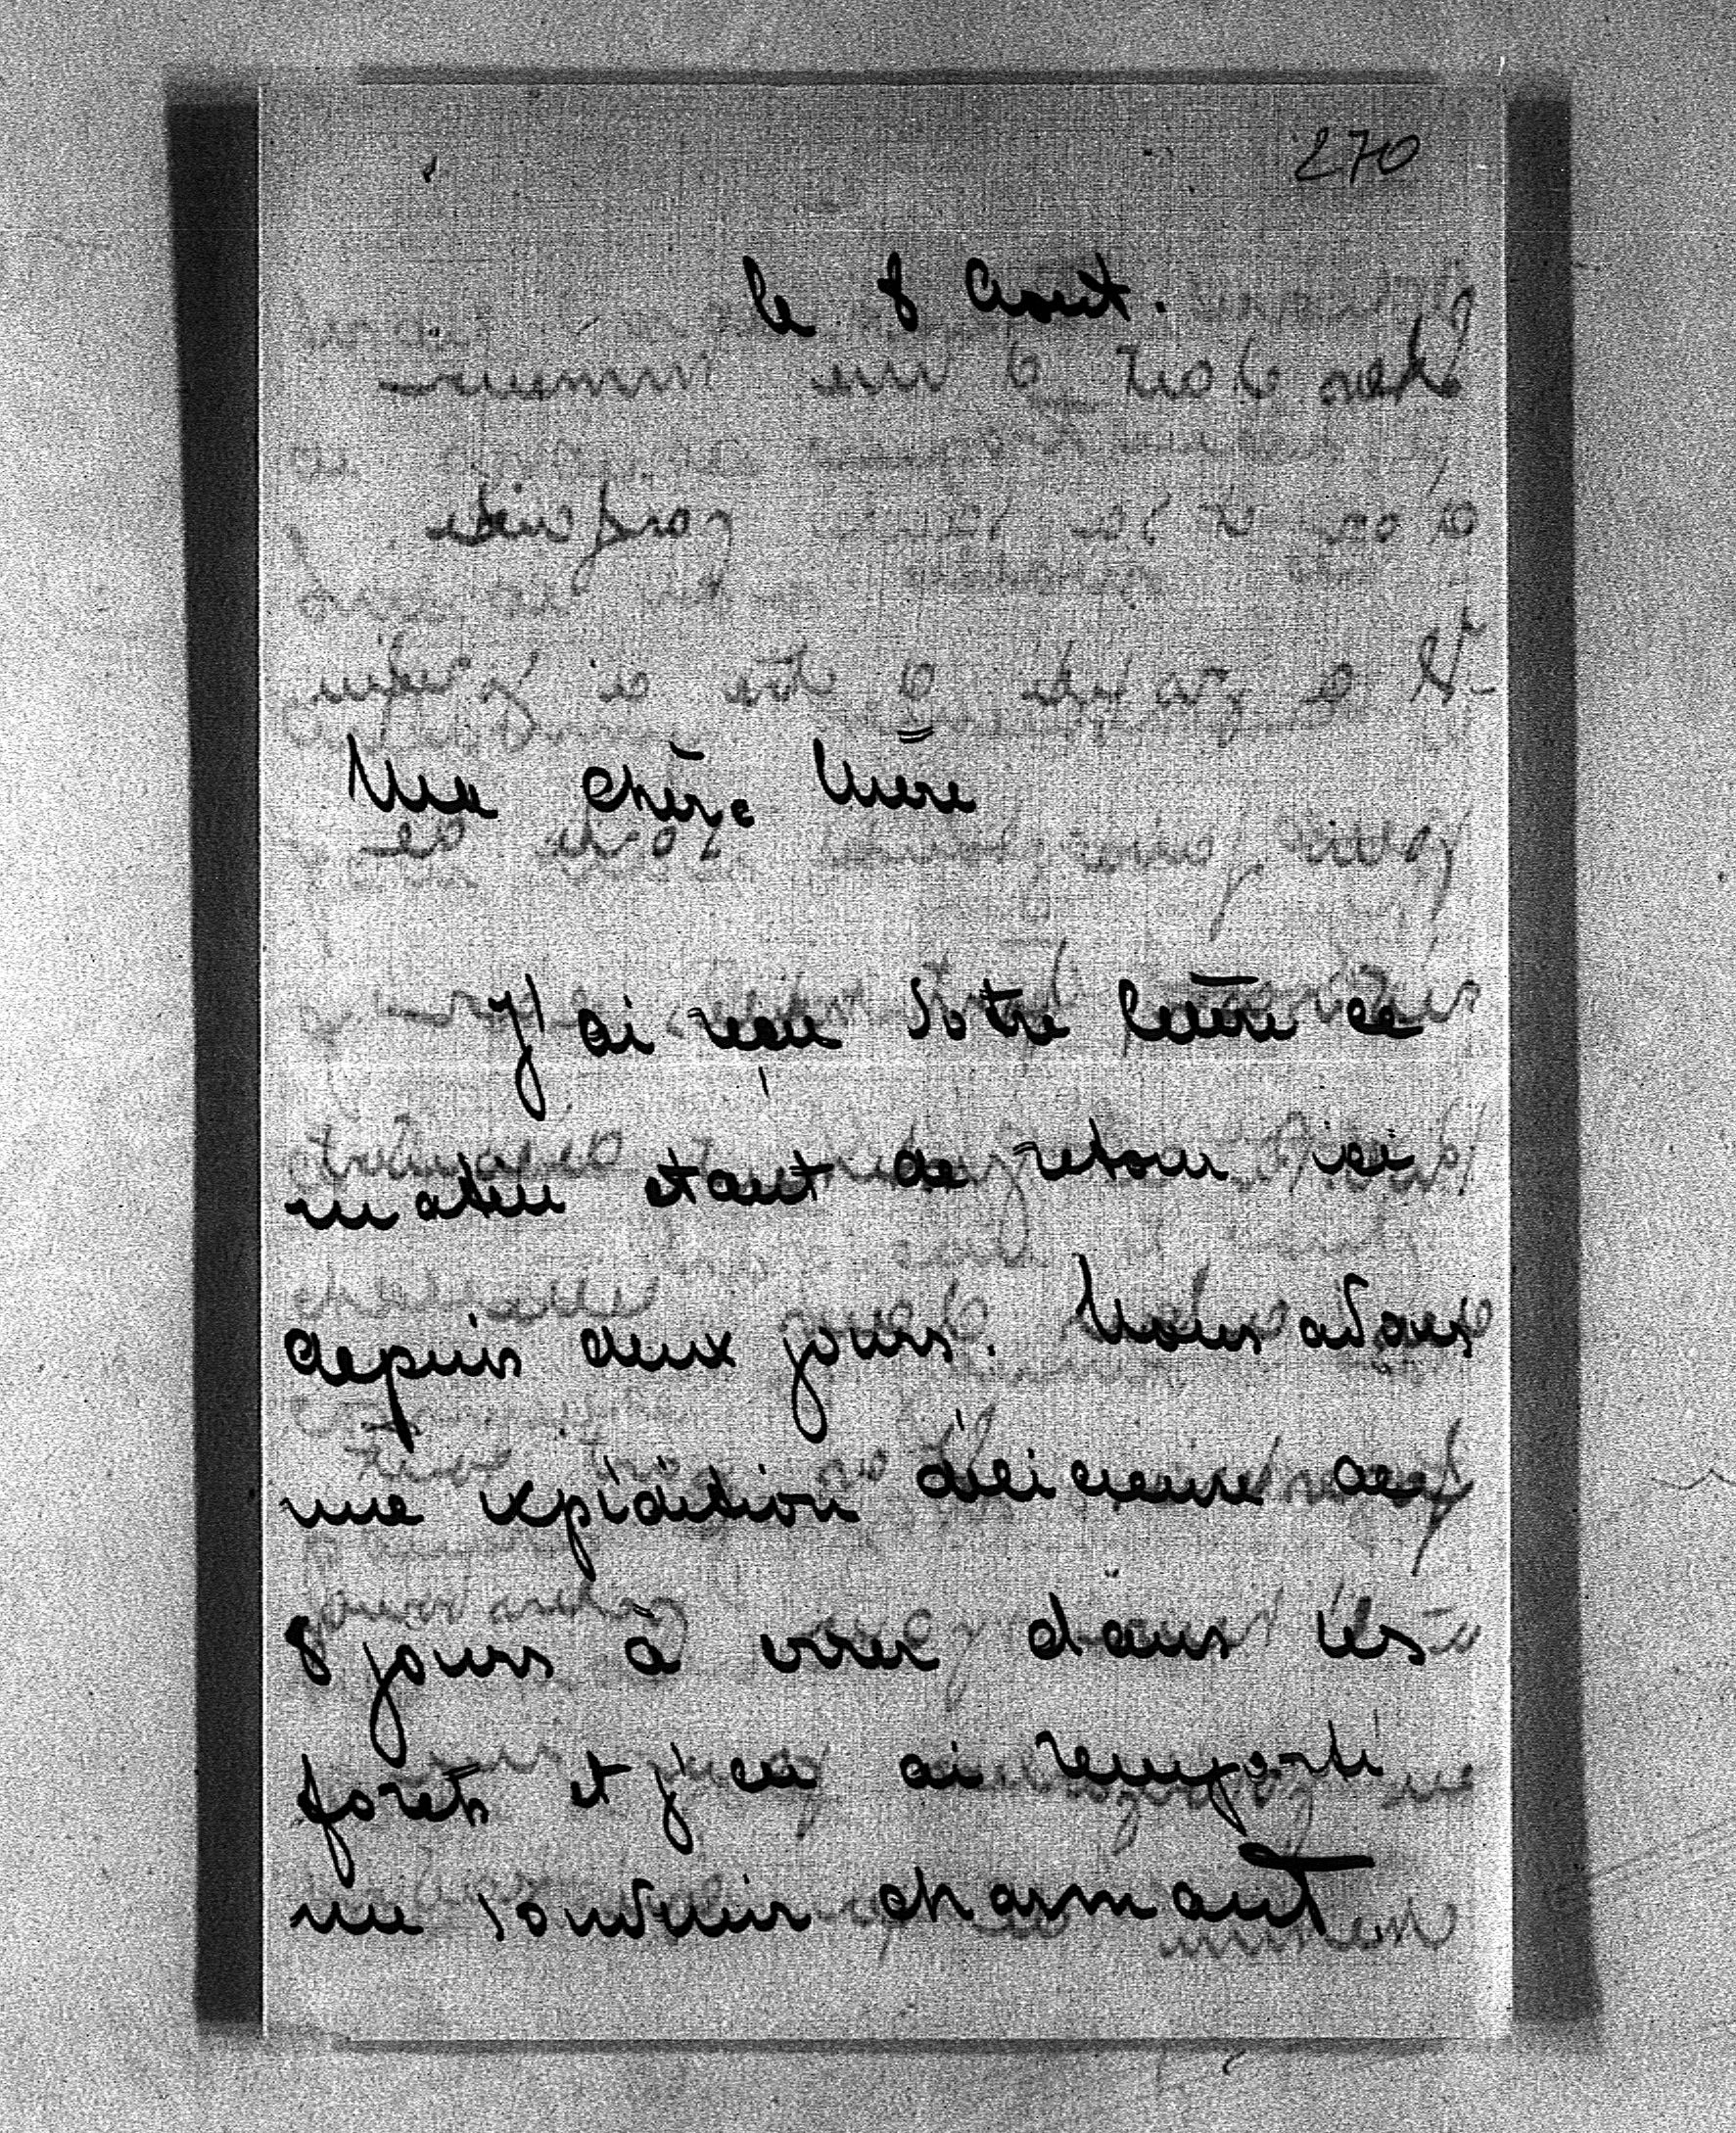 270
le 8 Aout.
Ma chère Mère
J'ai reçu Votre lettre ce
matin etant de retour ici
depuis deux jours. Nous avons
une expédition délicieuse de
8 jours à errer dans les
forets et j'en ai remporté
un souvenir charmant